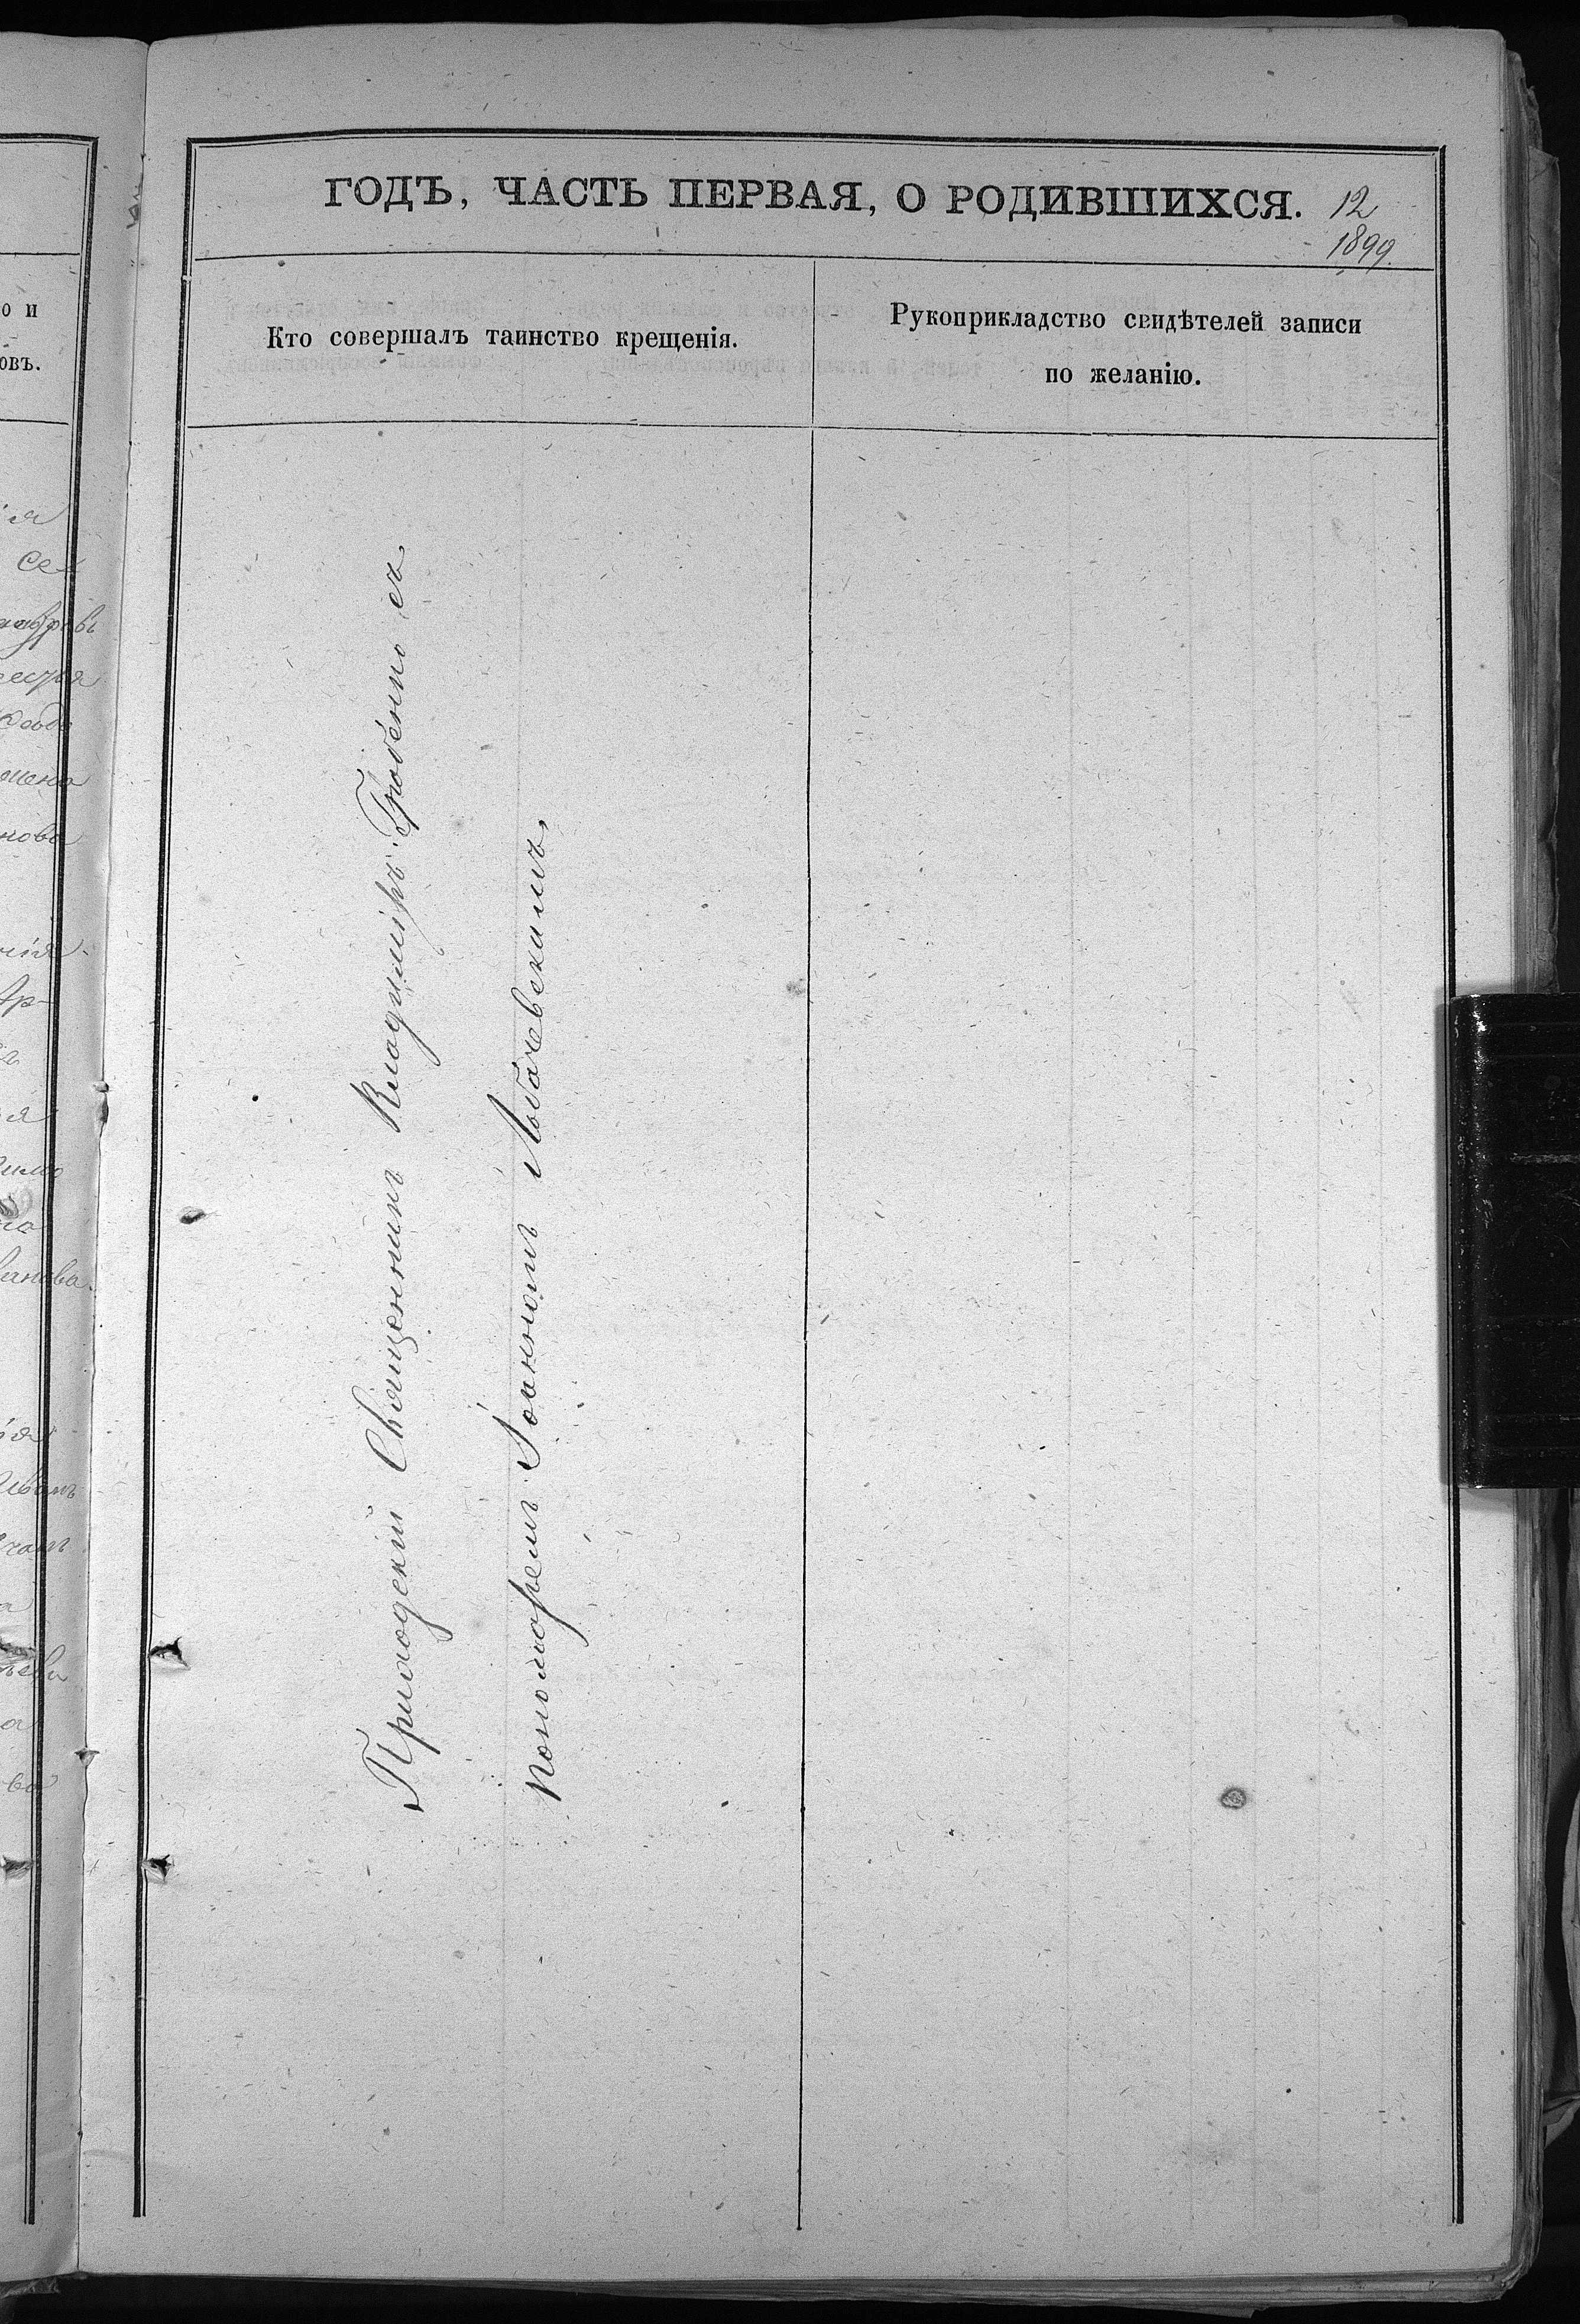 ГОДЪ, ЧАСТЬ ПЕРВАЯ, О РОДИВШИХСЯ.
12
1899.
Кто совершалъ таинство крещенія.
Рукоприкладство свидѣтелей записи
по желанію.
Приходскій Священникъ Владиміръ Гребенко съ
пономаремъ Іоанномъ Любачевскимъ,
о и
овъ.